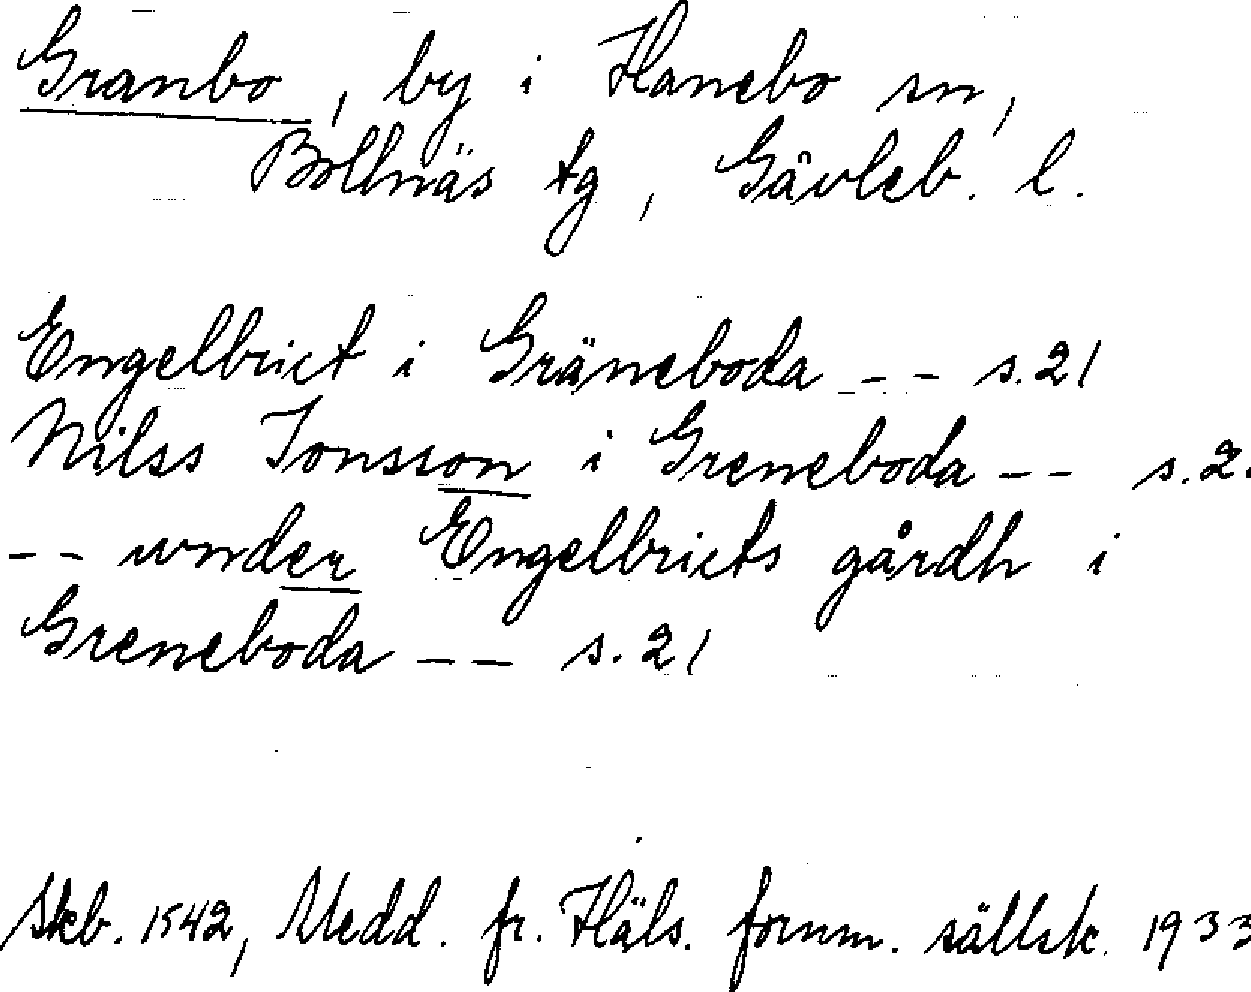 Granbo, by i Hanebo sn,
Bollnäs tg, Gävleb. l.
Engelbrict i Gräneboda -- s. 21
Nilss Jonsson i Greneboda -- s. 2.
-- wnder Engelbricts gårdh i
Greneboda -- s. 21
Skb. 1542, Medd. fr. Häls. fornm. sällsk. 1933